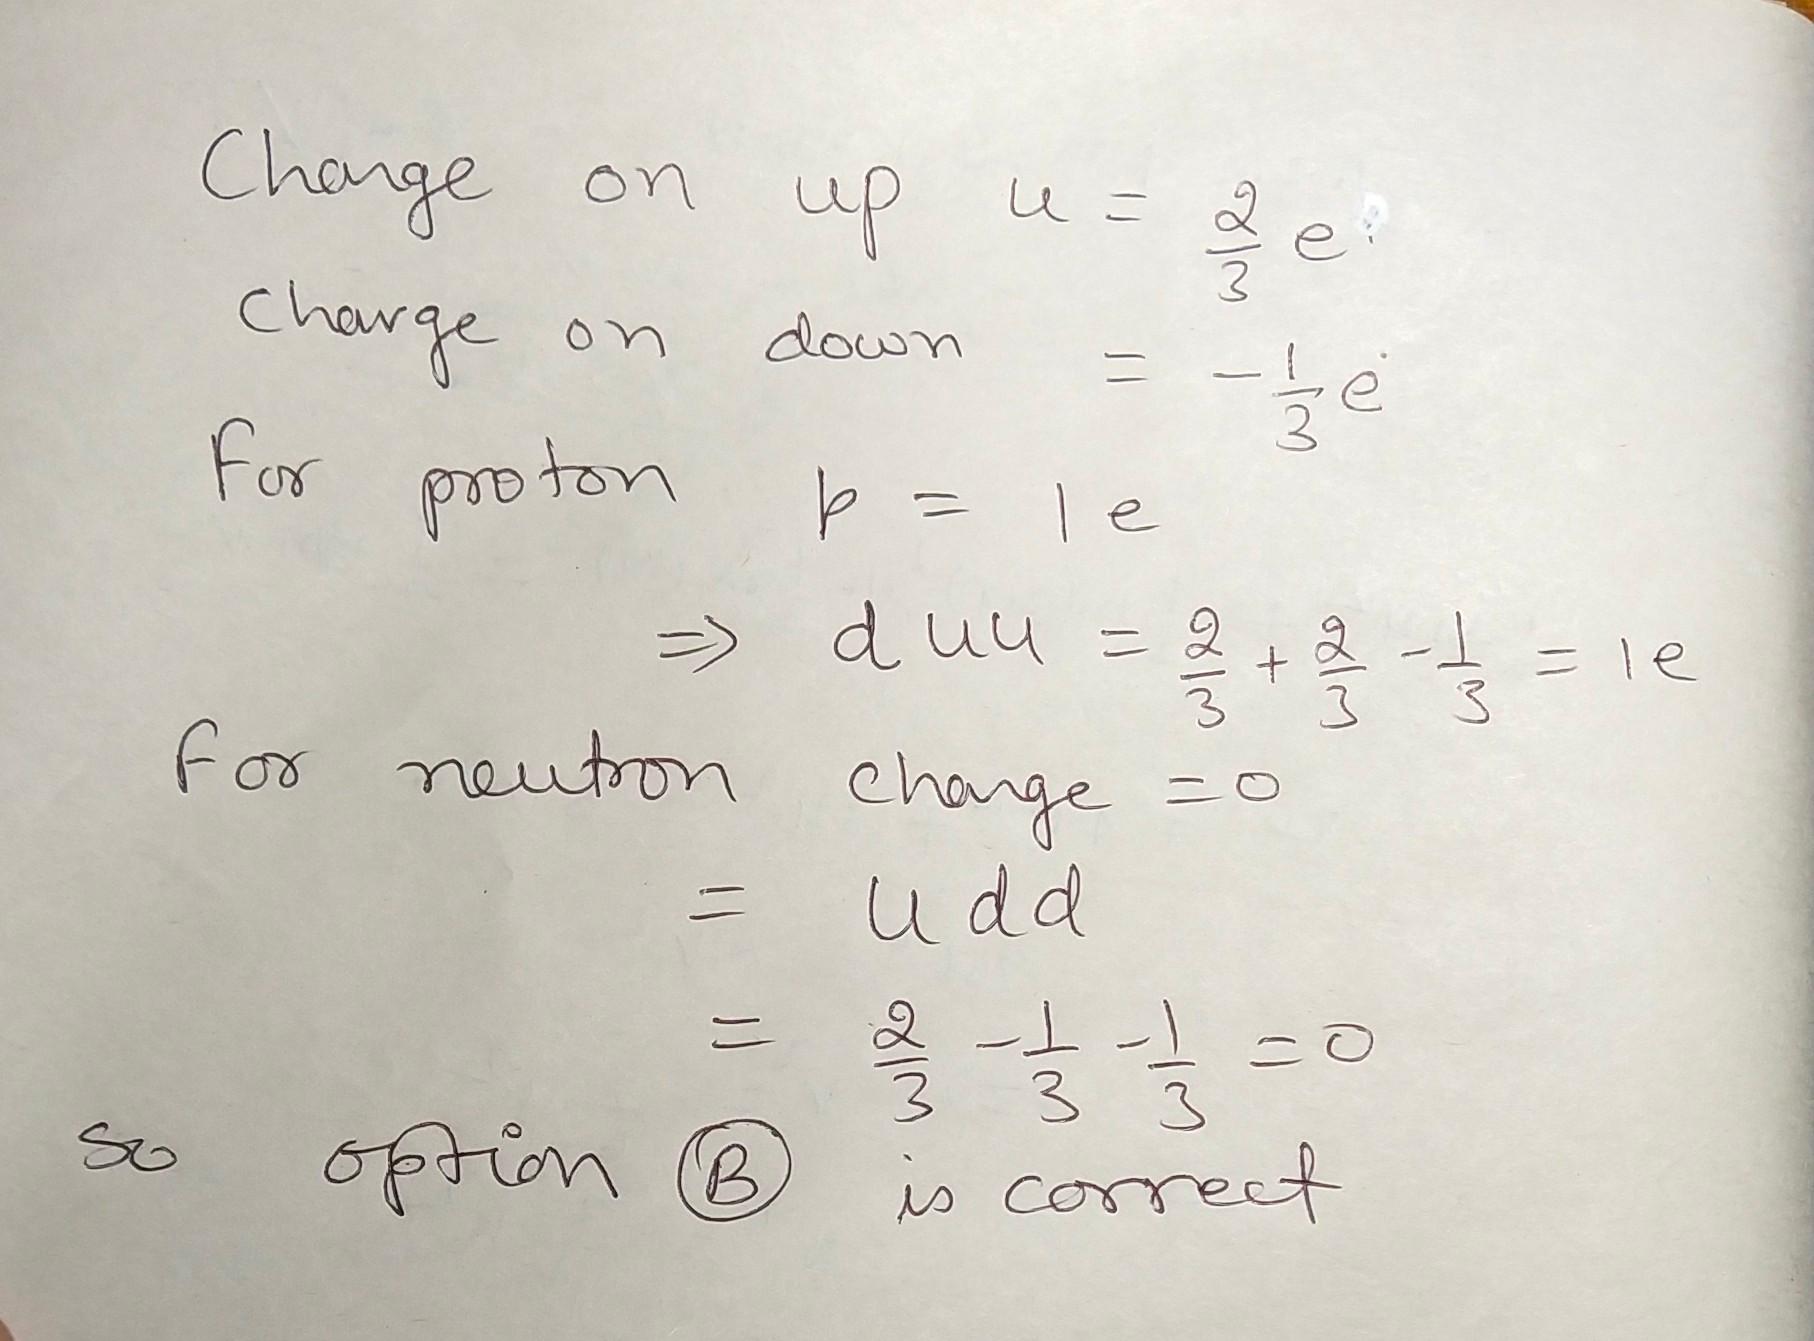 Charge on up u = 2/3 e
Charge on down = - 1/3 e
For proton p = 1e
⇒ d u u = 2/3 + 2/3 - 1/3 = 1e
For neutron charge = 0
= u d d
= 2/3 - 1/3 - 1/3 = 0
So option Ⓑ is correct